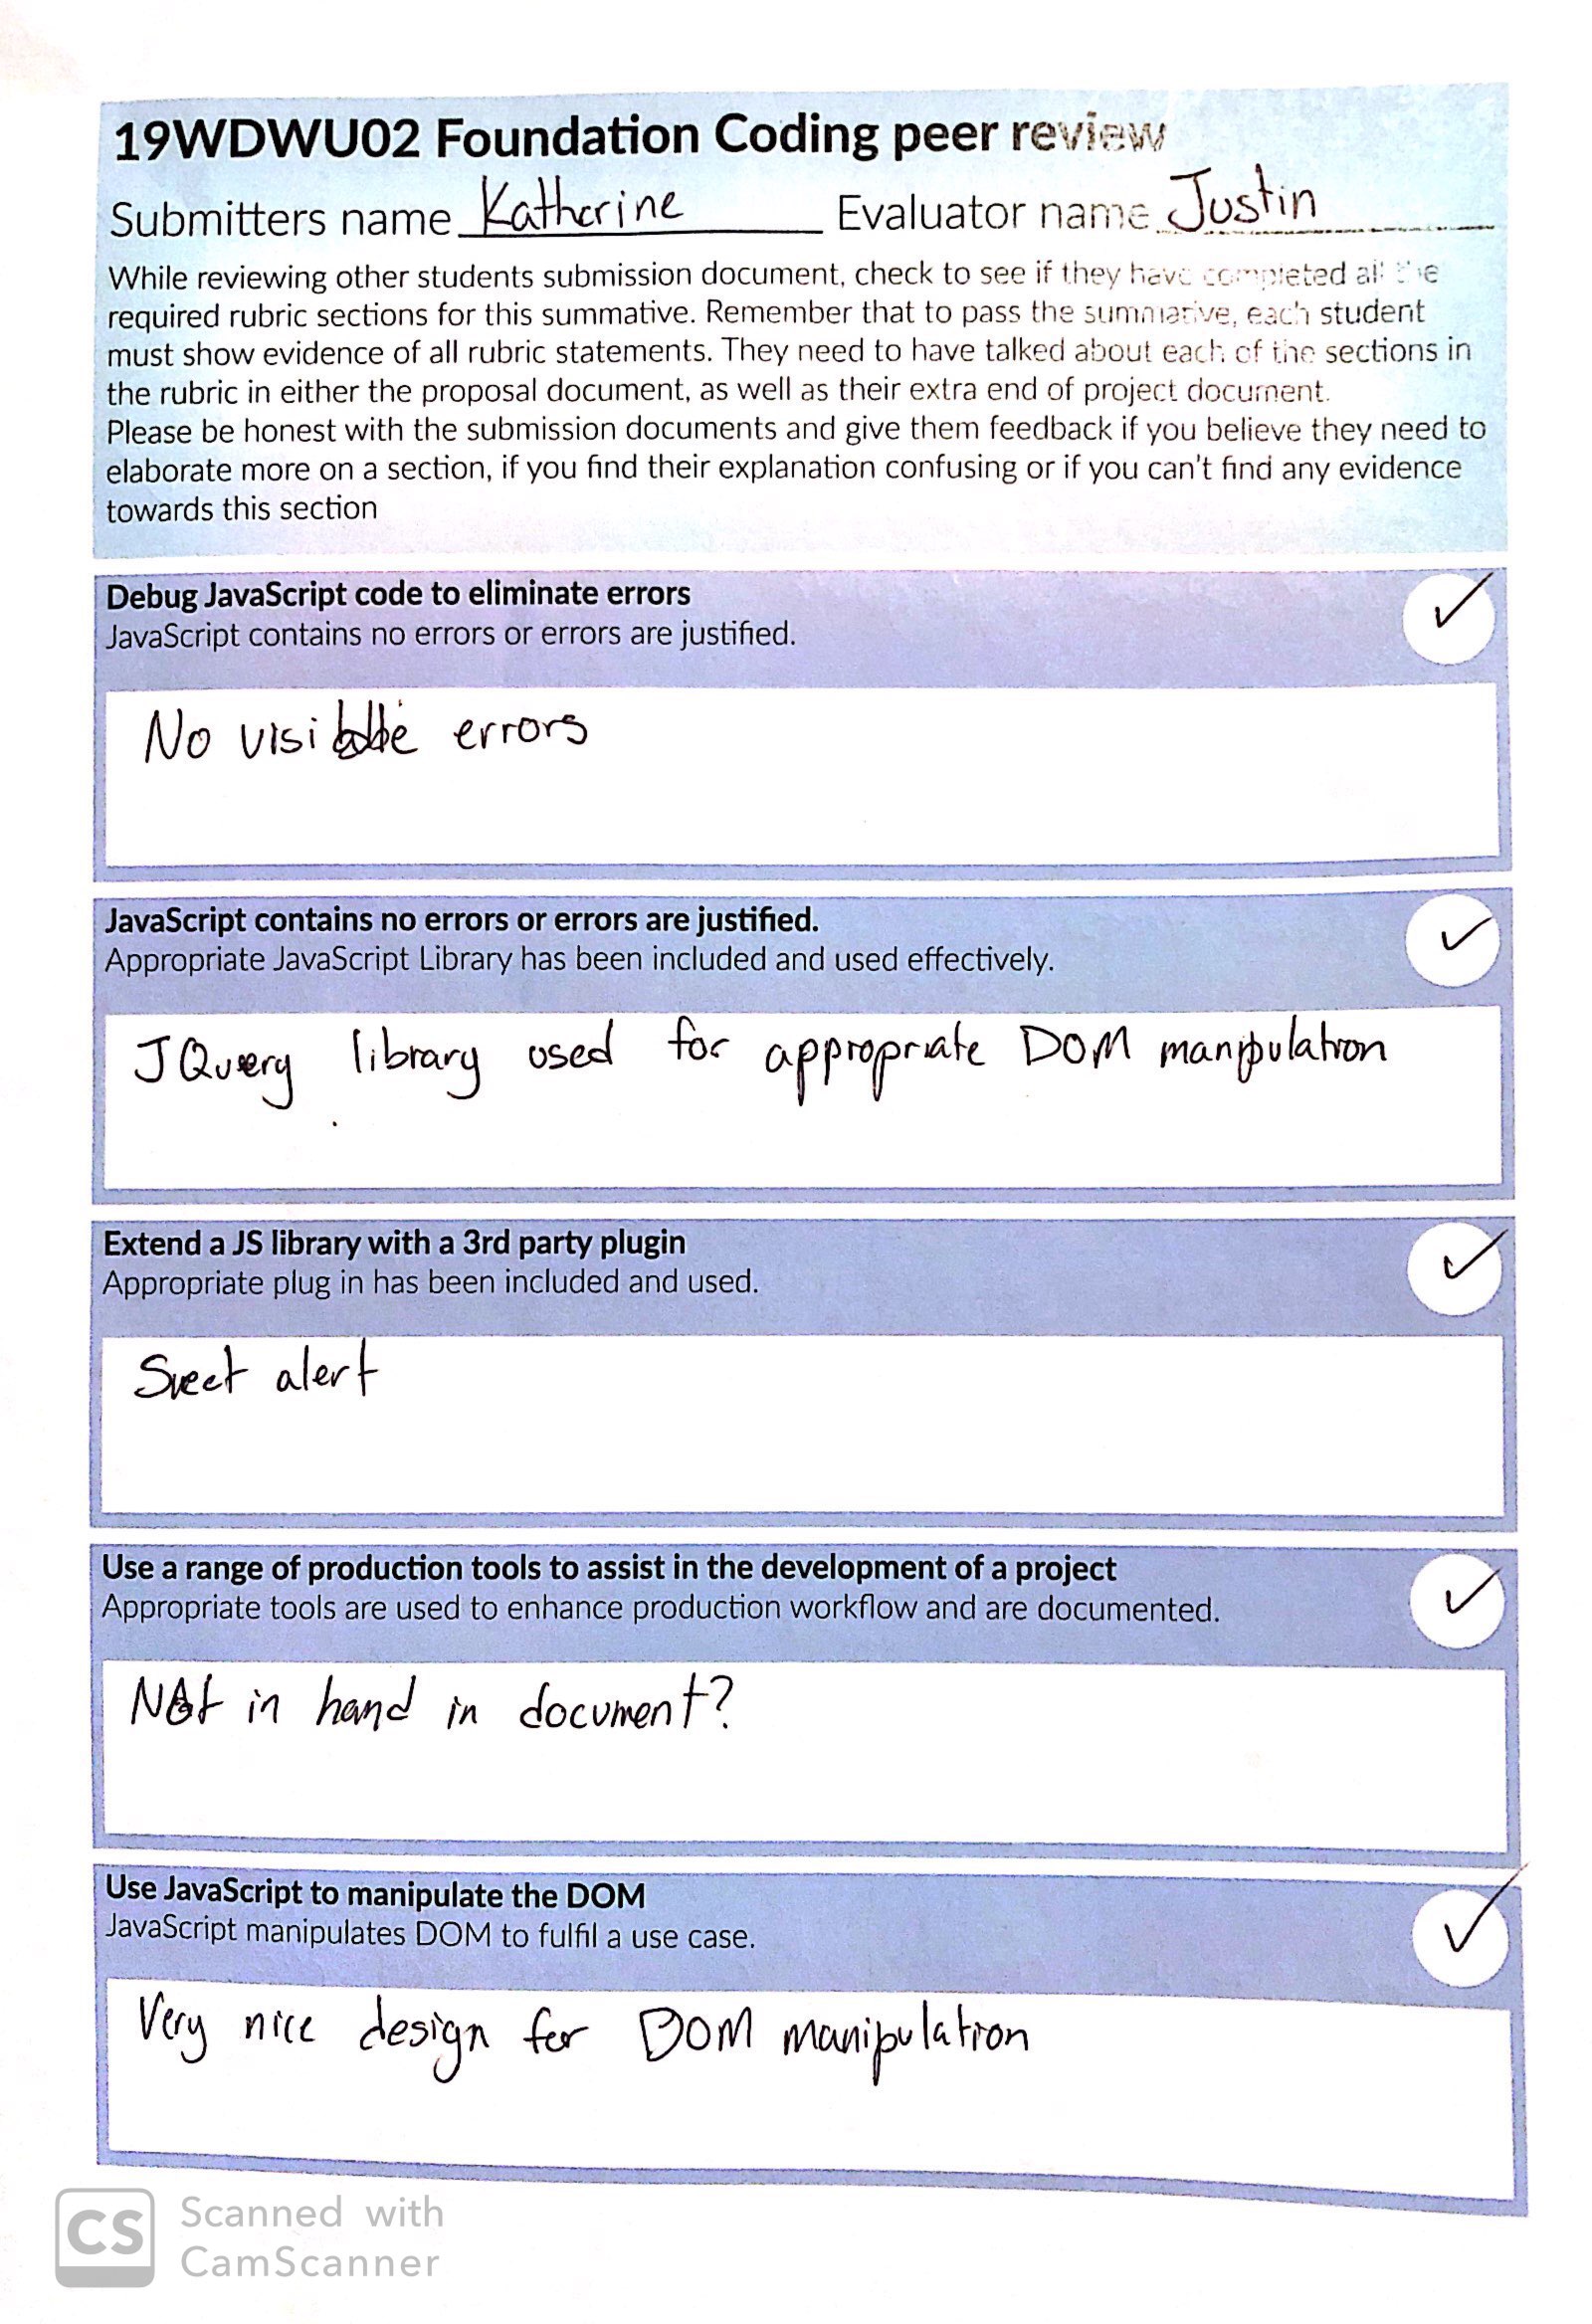 19WDWU02 Foundation Coding peer review
Submitters name Katherine Evaluator name Justin
While reviewing other students submission document, check to see if they have completed all the
required rubric sections for this summative. Remember that to pass the summative, each student
must show evidence of all rubric statements. They need to have talked about each of the sections in
the rubric in either the proposal document, as well as their extra end of project document.
Please be honest with the submission documents and give them feedback if you believe they need to
elaborate more on a section, if you find their explanation confusing or if you can't find any evidence
towards this section
Debug JavaScript code to eliminate errors
JavaScript contains no errors or errors are justified.
No visible errors
JavaScript contains no errors or errors are justified.
Appropriate JavaScript Library has been included and used effectively.
JQuery library used for appropriate DOM manipulation
Extend a JS library with a 3rd party plugin
Appropriate plug in has been included and used.
Sweet alert
Use a range of production tools to assist in the development of a project
Appropriate tools are used to enhance production workflow and are documented.
Not in hand in document?
Use JavaScript to manipulate the DOM
JavaScript manipulates DOM to fulfil a use case.
Very nice design for DOM manipulation
CS Scanned with
CamScanner